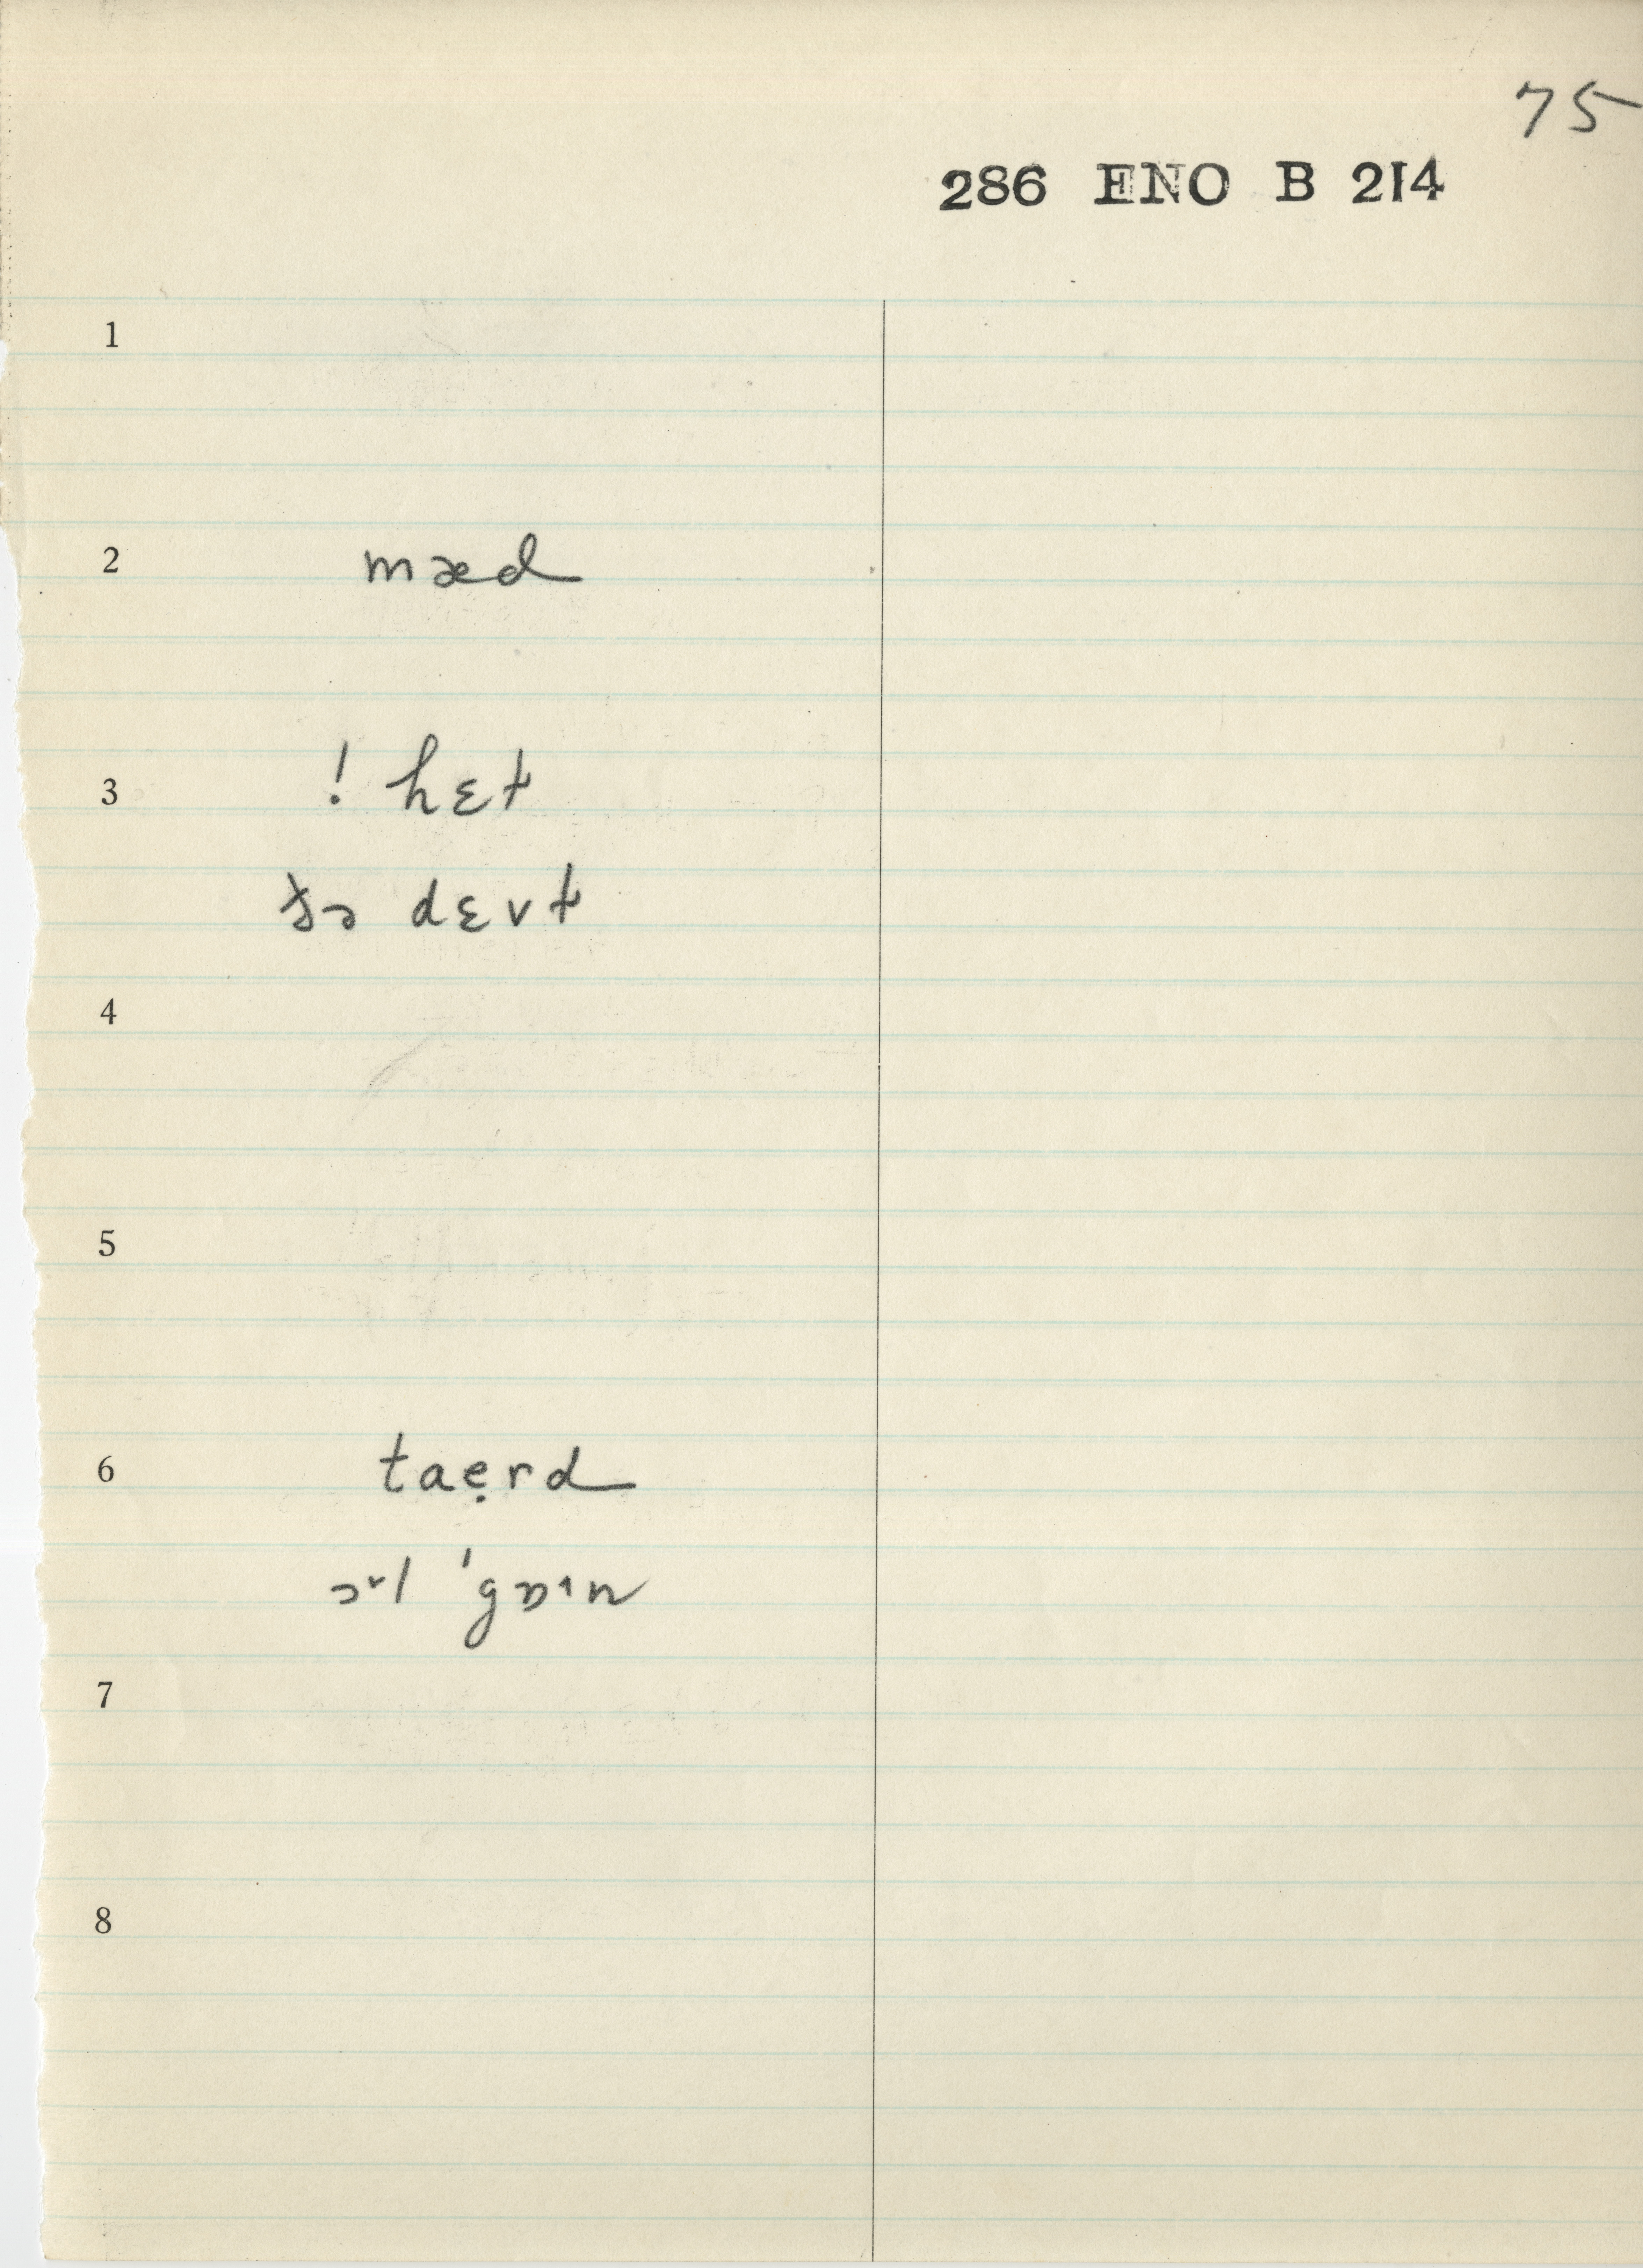 75
286 ENO B 214
1
2 mæd
3 ! hɛt
tə dɛvt
4
5
6 taẹrd
7
8